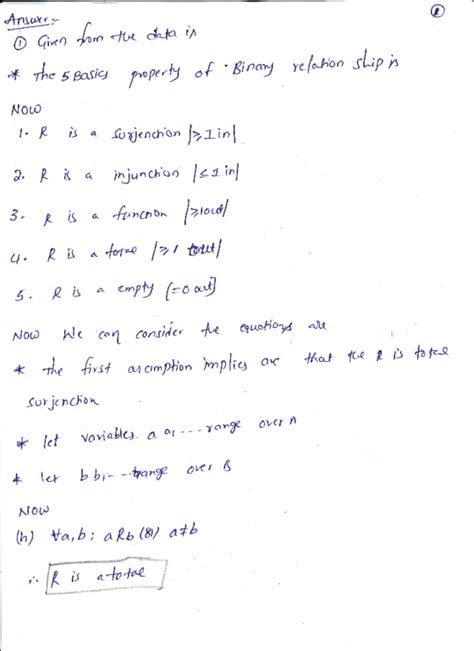 Answer:-
①
① Given from the data is
* the 5 Basics property of Binary relation ship is
Now
1. R is a surjenction |≥1 in|
2. R is a injunction |≤1 in|
3. R is a function |≥1out|
4. R is a totae |≥1 out|
5. R is a empty [=0 out]
Now We can consider the equations are
* the first assimption implies are that the R is totae
surjenction
* let variables a a, ---- range over A
* let b b, -- range over B
Now
(h) ∀a,b: aRb (8) a≠b
∴ R is a totae